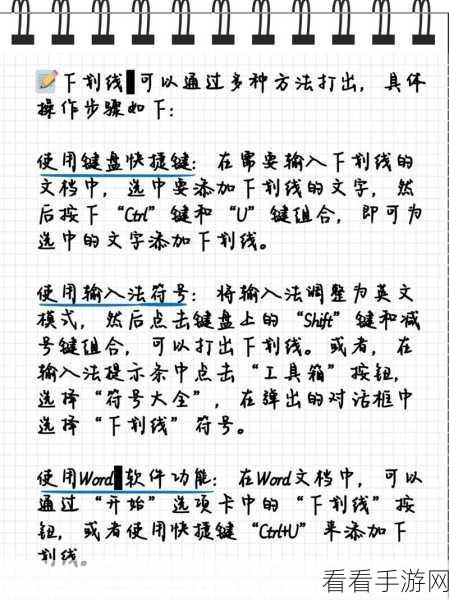 📝下划线 可以通过多种方法打出，具体
操作步骤如下：
使用键盘快捷键：在需要输入下划线的
文档中，选中要添加下划线的文字，然
后按下“Ctrl”键和“U”键组合，即可为
选中的文字添加下划线。
使用输入法符号：将输入法调整为英文
模式，然后点击键盘上的“Shift”键和减
号键组合，可以打出下划线。或者，在
输入法提示条中点击“工具箱”按钮，
选择“符号大全”，在弹出的对话框中
选择“下划线”符号。
使用Word 软件功能：在Word文档中，可以
通过“开始”选项卡中的“下划线”按
钮，或者使用快捷键“Ctrl+U”来添加下
划线。
看看手游网